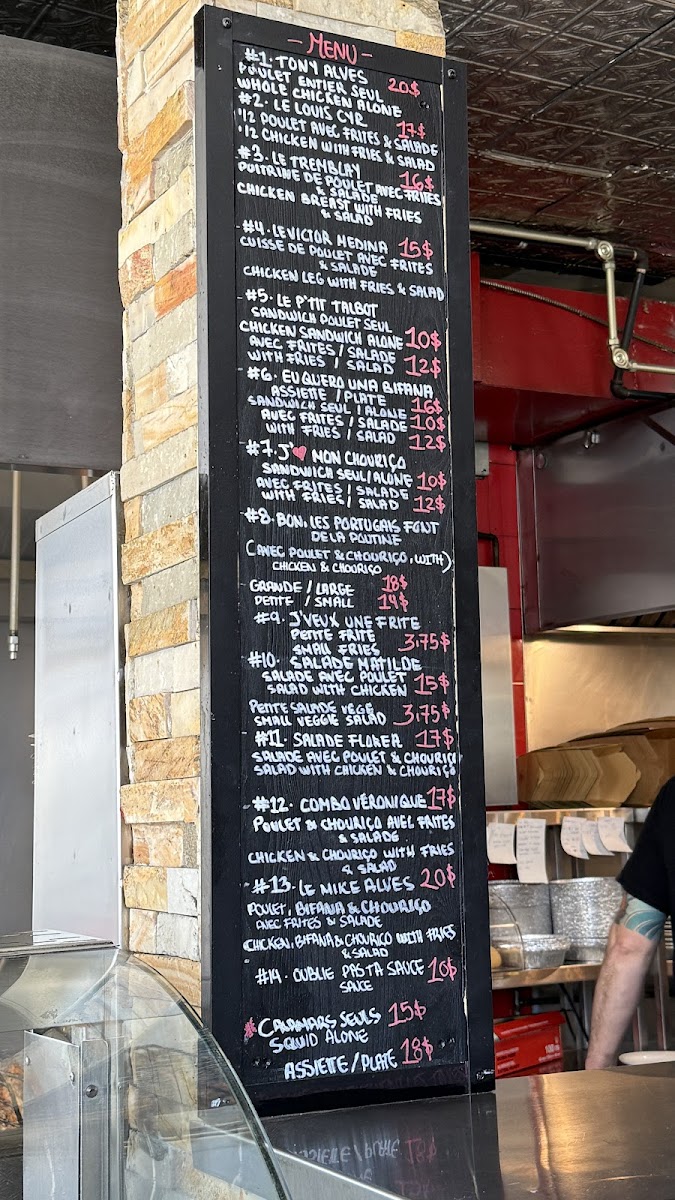 - MENU -
#1. TONY ALVES
POULET ENTIER SEUL 20$
WHOLE CHICKEN ALONE
#2. LE LOUIS CYR
1/2 POULET AVEC FRITES & SALADE 17$
1/2 CHICKEN WITH FRIES & SALAD
#3. LE TREMBLAY 16$
POITRINE DE POULET AVEC FRITES
& SALADE
CHICKEN BREAST WITH FRIES
& SALAD
#4. LE VICTOR MEDINA 15$
CUISSE DE POULET AVEC FRITES
& SALADE
CHICKEN LEG WITH FRIES & SALAD
#5. LE P'TIT TALBOT
SANDWICH POULET SEUL
CHICKEN SANDWICH ALONE 10$
AVEC FRITES / SALADE
WITH FRIES / SALAD 12$
#6. EU QUERO UMA BIFANA
ASSIETTE / PLATE 16$
SANDWICH SEUL / ALONE 10$
AVEC FRITES / SALADE
WITH FRIES / SALAD 12$
#7. J'♥ MON CHOURIÇO
SANDWICH SEUL/ALONE 10$
AVEC FRITES / SALADE
WITH FRIES / SALAD 12$
#8. BON, LES PORTUGAIS FONT
DE LA POUTINE
(AVEC POULET & CHOURIÇO, WITH)
CHICKEN & CHOURIÇO
GRANDE / LARGE 18$
PETITE / SMALL 14$
#9. J'VEUX UNE FRITE
PETITE FRITE
SMALL FRIES 3,75$
#10. SALADE MATILDE
SALADE AVEC POULET
SALAD WITH CHICKEN 15$
PETITE SALADE VÉGÉ
SMALL VEGGIE SALAD 3,75$
#11. SALADE FLORER 17$
SALADE AVEC POULET & CHOURIÇO
SALAD WITH CHICKEN & CHOURIÇO
#12. COMBO VÉRONIQUE 17$
POULET & CHOURIÇO AVEC FRITES
& SALADE
CHICKEN & CHOURIÇO WITH FRIES
& SALAD
#13. LE MIKE ALVES 20$
POULET, BIFANA & CHOURIÇO
AVEC FRITES & SALADE
CHICKEN, BIFANA & CHOURIÇO WITH FRIES
& SALAD
#14. OUBLIE PAS TA SAUCE 10$
SAUCE
* CALAMARS SEULS 15$
SQUID ALONE
ASSIETTE / PLATE 18$